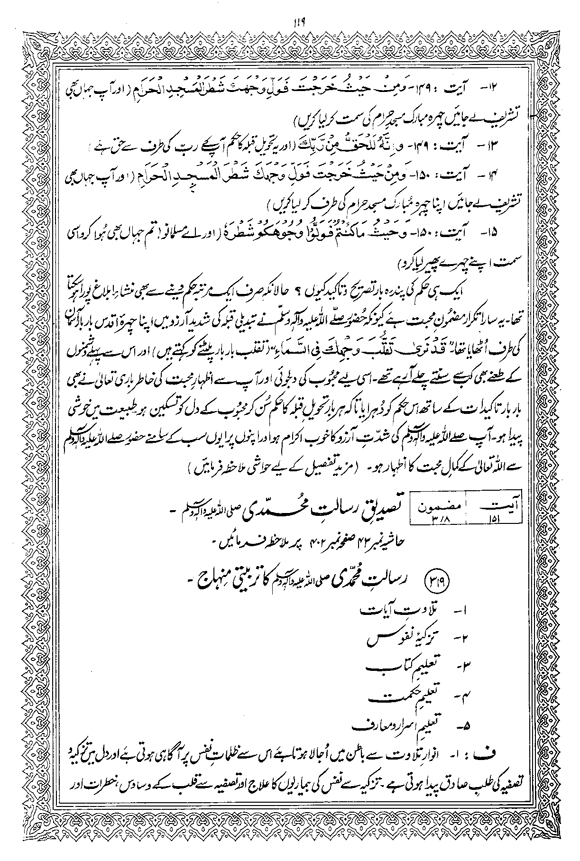 ۱۱۹
۱۲- آیت : ۱۴۹- وَمِنْ حَیْثُ خَرَجْتَ فَوَلِّ وَجْهَكَ شَطْرَ الْمَسْجِدِ الْحَرَامِ (اور آپ جہاں بھی
تشریف لے جائیں چہرہ مبارک مسجدِ حرام کی سمت کر لیا کریں)
۱۳- آیت : ۱۴۹- وَاِنَّهٗ لَلْحَقُّ مِنْ رَّبِّكَ (اور یہ تحویلِ قبلہ کا حکم آپ کے رب کی طرف سے حق ہے)
۱۴- آیت : ۱۵۰- وَمِنْ حَیْثُ خَرَجْتَ فَوَلِّ وَجْهَكَ شَطْرَ الْمَسْجِدِ الْحَرَامِ (اور آپ جہاں بھی
تشریف لے جائیں اپنا چہرہ مبارک مسجدِ حرام کی طرف کر لیا کریں)
۱۵- آیت : ۱۵۰- وَحَیْثُ مَا كُنْتُمْ فَوَلُّوْا وُجُوْهَكُمْ شَطْرَهٗ (اور اے مسلمانو! تم جہاں بھی ہوا کرو اسی
سمت اپنے چہرے پھیر لیا کرو)
ایک ہی حکم کی پندرہ بار تصریح و تاکید کیوں ؟ حالانکہ صرف ایک مرتبہ حکم دینے سے بھی منشاءِ ابلاغ پورا ہو سکتا
تھا۔ یہ سارا تکرار مضمونِ محبت ہے کیونکہ حضور صلے اللہ علیہ وآلہ وسلم نے تبدیلیِ قبلہ کی شدید آرزو میں اپنا چہرۂ اقدس بار بار آسمان
کی طرف اُٹھایا تھا" قَدْ نَرٰی تَقَلُّبَ وَجْهِكَ فِی السَّمَآءِ" (تقلب بار بار پلٹنے کو کہتے ہیں) اور اس سے پہلے دشمنوں
کے طعنے بھی سنتے چلے آ رہے تھے۔ اسی لیے محبوب کی دلجوئی اور آپ سے اظہارِ محبت کی خاطر باری تعالیٰ نے بھی
بار بار تاکیدات کے ساتھ اس حکم کو دُہرایا تاکہ ہر بار تحویلِ قبلہ کا حکم سن کر محبوب کے دل کو تسکین ہو، طبیعت میں خوشی
پیدا ہو۔ آپ صلے اللہ علیہ وآلہ وسلم کی شدتِ آرزو کا خوب اکرام ہو اور اپنوں پرایوں سب کے سامنے حضور صلے اللہ علیہ وآلہ وسلم
سے اللہ تعالیٰ کے کمالِ محبت کا اظہار ہو۔ (مزید تفصیل کے لیے حواشی ملاحظہ فرمائیں)
آیت ۱۵۱ مضمون ۳/۸ تصدیقِ رسالتِ محمدی صلی اللہ علیہ وآلہ وسلم -
حاشیہ نمبر ۴۳ صفحہ نمبر ۴۰۲ پر ملاحظہ فرمائیں -
۳۱۹ رسالتِ محمدی صلی اللہ علیہ وآلہ وسلم کا تربیتی منہاج -
۱- تلاوتِ آیات
۲- تزکیۂ نفوس
۳- تعلیمِ کتاب
۴- تعلیمِ حکمت
۵- تعلیمِ اسرار و معارف
ف : ۱- انوارِ تلاوت سے باطن میں اُجالا ہوتا ہے اس سے ظلماتِ نفس پر آگاہی ہوتی ہے اور دل میں تزکیہ و
تصفیہ کی طلبِ صادق پیدا ہوتی ہے۔ تزکیہ سے نفس کی بیماریوں کا علاج اور تصفیہ سے قلب کے وساوس، خطرات اور